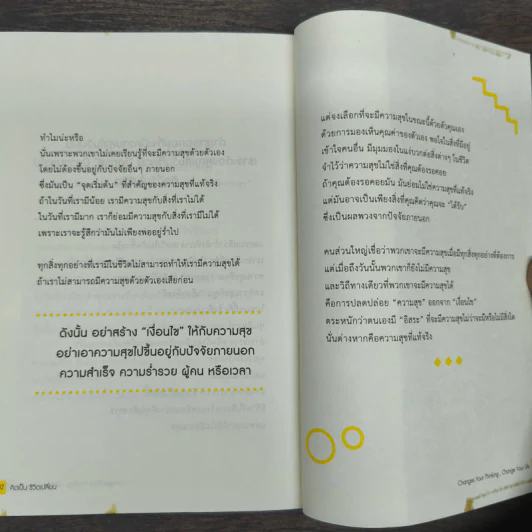 ทำไมน่ะหรือ
นั่นเพราะพวกเขาไม่เคยเรียนรู้ที่จะมีความสุขด้วยตัวเอง
โดยไม่ต้องขึ้นอยู่กับปัจจัยอื่นๆ ภายนอก
ซึ่งมันเป็น "จุดเริ่มต้น" ที่สำคัญของความสุขที่แท้จริง
ถ้าในวันที่เรามีน้อย เรามีความสุขกับสิ่งที่เราไม่ได้
ในวันที่เรามีมาก เราก็ย่อมมีความสุขกับสิ่งที่เรามีไม่ได้
เพราะเราจะรู้สึกว่ามันไม่เพียงพออยู่ร่ำไป
ทุกสิ่งทุกอย่างที่เรามีในชีวิตไม่สามารถทำให้เรามีความสุขได้
ถ้าเราไม่สามารถมีความสุขด้วยตัวเองเสียก่อน
ดังนั้น อย่าสร้าง "เงื่อนไข" ให้กับความสุข
อย่าเอาความสุขไปขึ้นอยู่กับปัจจัยภายนอก
ความสำเร็จ ความร่ำรวย ผู้คน หรือเวลา
คิดเป็น ชีวิตเปลี่ยน
แต่จงเลือกที่จะมีความสุขในขณะนี้ด้วยตัวคุณเอง
ด้วยการมองเห็นคุณค่าของตัวเอง พอใจในสิ่งที่มีอยู่
เข้าใจคนอื่น มีมุมมองในแง่บวกต่อสิ่งต่างๆ ในชีวิต
จำไว้ว่าความสุขไม่ใช่สิ่งที่คุณต้องรอคอย
ถ้าคุณต้องรอคอยมัน มันย่อมไม่ใช่ความสุขที่แท้จริง
แต่มันอาจเป็นเพียงสิ่งที่คุณคิดว่าคุณจะ "ได้รับ"
ซึ่งเป็นผลพวงจากปัจจัยภายนอก
คนส่วนใหญ่เชื่อว่าพวกเขาจะมีความสุขเมื่อมีทุกสิ่งทุกอย่างที่ต้องการ
แต่เมื่อถึงวันนั้นพวกเขาก็ยังไม่มีความสุข
และวิถีทางเดียวที่พวกเขาจะมีความสุขได้
คือการปลดปล่อย "ความสุข" ออกจาก "เงื่อนไข"
ตระหนักว่าตนเองมี "อิสระ" ที่จะมีความสุขไม่ว่าจะมีหรือไม่มีสิ่งใด
นั่นต่างหากคือความสุขที่แท้จริง
Change Your Thinking, Change Your Life